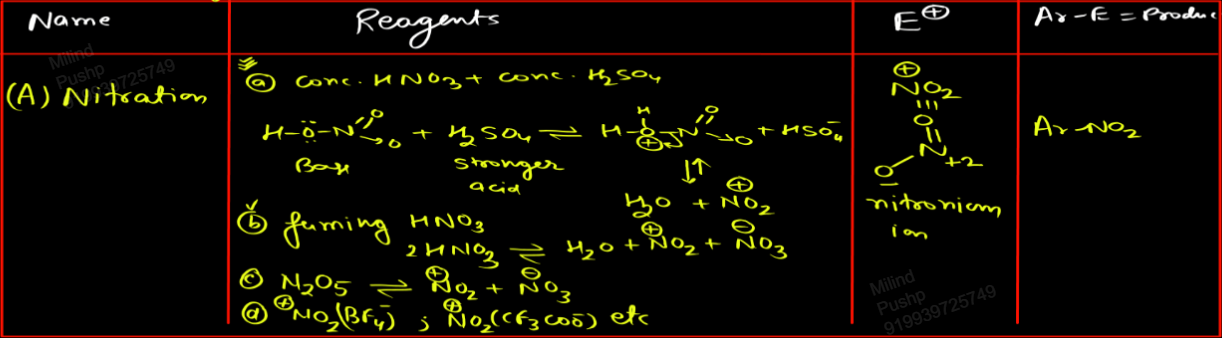 Name Reagents E⊕ Ar-E = Produc
(A) Nitration
ⓐ conc. HNO3 + conc. H2SO4
H-Ö-N=O→O + H2SO4 ⇌ H-O⊕-N=O→O + HSO4⁻
H
Base stronger acid
⇅
H2O + ⊕NO2
ⓑ fuming HNO3
2HNO3 ⇌ H2O + ⊕NO2 + ⊖NO3
ⓒ N2O5 ⇌ ⊕NO2 + ⊖NO3
ⓓ ⊕NO2(BF4⁻) ; ⊕NO2(CF3COO⁻) etc
⊕NO2
≡
O=N+2
O⁻
nitronium
ion
Ar-NO2
Milind
Pushp
919939725749
Milind
Pushp
919939725749